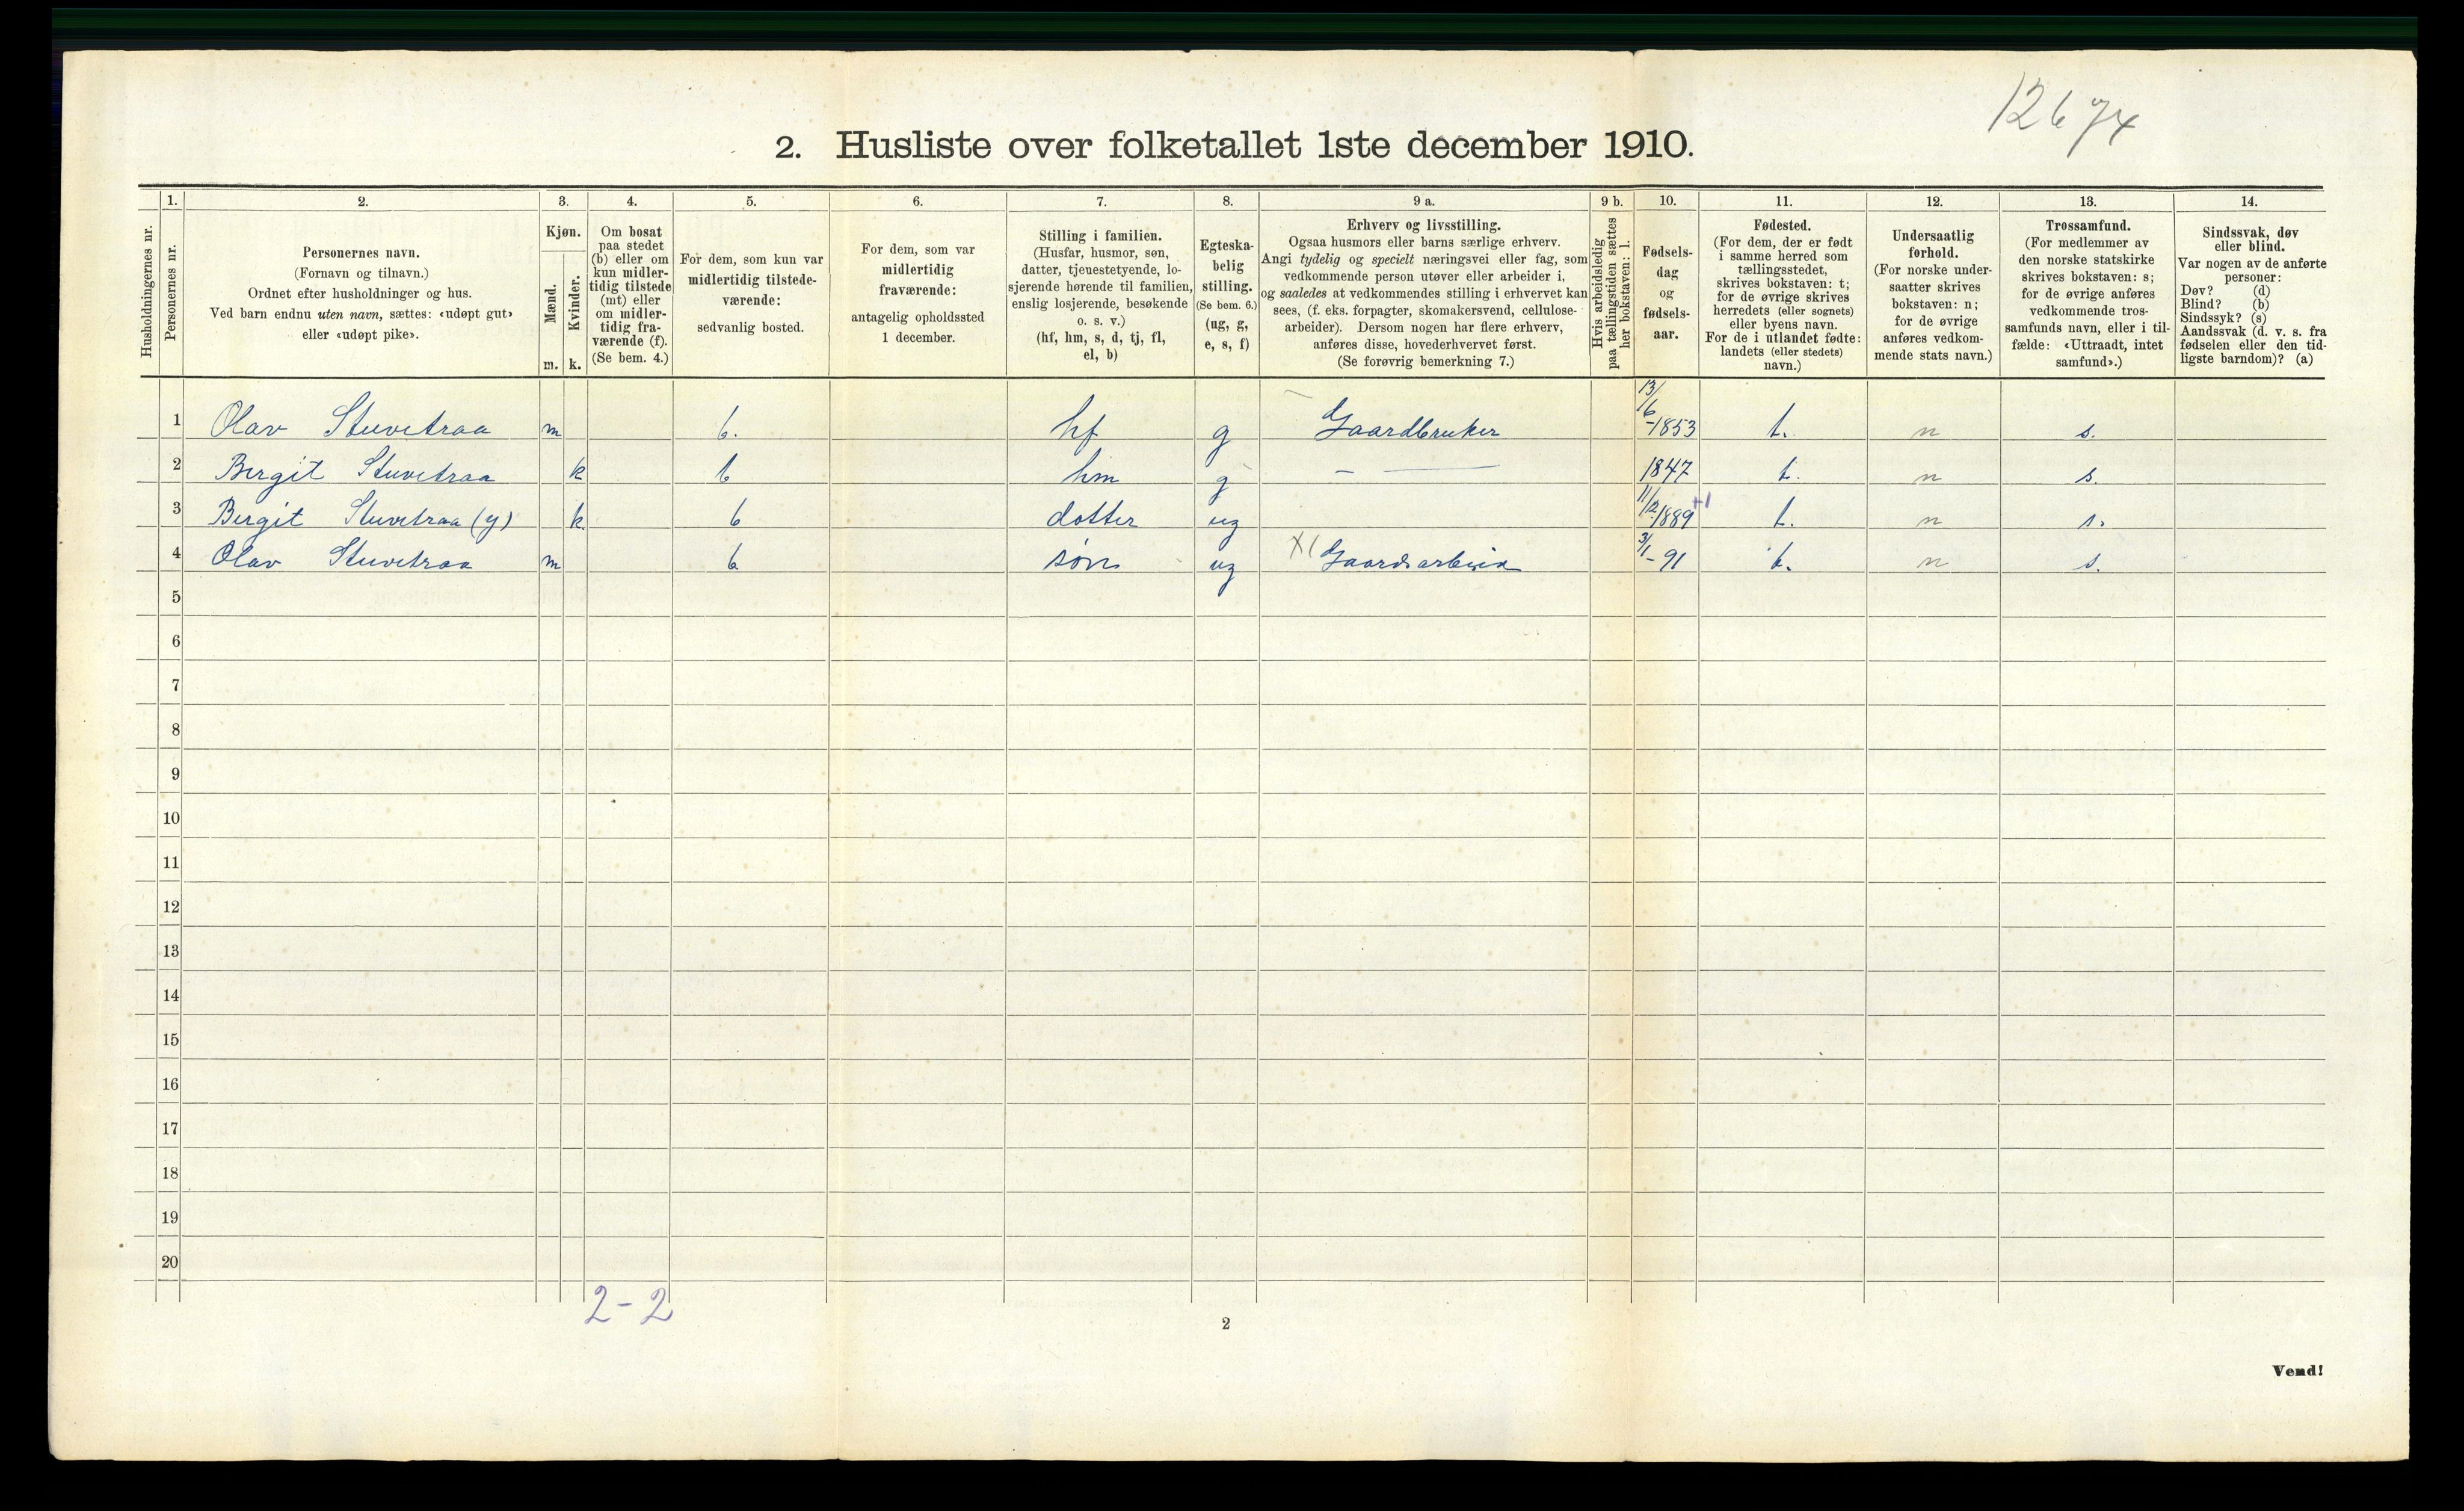 12674
2. Husliste over folketallet 1ste december 1910.
Husholdningernes nr.
1.
Personernes nr.
2.
Personernes navn.
(Fornavn og tilnavn.)
Ordnet efter husholdninger og hus.
Ved barn endnu uten navn, sættes: «udøpt gut»
eller «udøpt pike».
3.
Kjøn.
Mænd.
Kvinder.
m. k.
4.
Om bosat
paa stedet
(b) eller om
kun midler-
tidig tilstede
(mt) eller
om midler-
tidig fra-
værende (f).
(Se bem. 4.)
5.
For dem, som kun var
midlertidig tilstede-
værende:
sedvanlig bosted.
6.
For dem, som var
midlertidig
fraværende:
antagelig opholdssted
1 december.
7.
Stilling i familien.
(Husfar, husmor, søn,
datter, tjenestetyende, lo-
sjerende hørende til familien,
enslig losjerende, besøkende
o. s. v.)
(hf, hm, s, d, tj, fl,
el, b)
8.
Egteska-
belig
stilling.
(Se bem. 6.)
(ug, g,
e, s, f)
9 a.
Erhverv og livsstilling.
Ogsaa husmors eller barns særlige erhverv.
Angi tydelig og specielt næringsvei eller fag, som
vedkommende person utøver eller arbeider i,
og saaledes at vedkommendes stilling i erhvervet kan
sees, (f. eks. forpagter, skomakersvend, cellulose-
arbeider). Dersom nogen har flere erhverv,
anføres disse, hovederhvervet først.
(Se forøvrig bemerkning 7.)
9 b.
Hvis arbeidsledig
paa tællingstiden sættes
her bokstaven: l.
10.
Fødsels-
dag
og
fødsels-
aar.
11.
Fødested.
(For dem, der er født
i samme herred som
tællingsstedet,
skrives bokstaven: t;
for de øvrige skrives
herredets (eller sognets)
eller byens navn.
For de i utlandet fødte:
landets (eller stedets)
navn.)
12.
Undersaatlig
forhold.
(For norske under-
saatter skrives
bokstaven: n;
for de øvrige
anføres vedkom-
mende stats navn.)
13.
Trossamfund.
(For medlemmer av
den norske statskirke
skrives bokstaven: s;
for de øvrige anføres
vedkommende tros-
samfunds navn, eller i til-
fælde: «Uttraadt, intet
samfund».)
14.
Sindssvak, døv
eller blind.
Var nogen av de anførte
personer:
Døv? (d)
Blind? (b)
Sindssyk? (s)
Aandssvak (d. v. s. fra
fødselen eller den tid-
ligste barndom)? (a)
1 Olav Stuvetraa m b. hf g Gaardbruker 13/6 -1853 t. n s.
2 Bergit Stuvetraa k b hm g – — 1847 t. n s.
3 Bergit Stuvetraa (y) k. b dotter ug 11/2 1889 +1 t. n s.
4 Olav Stuvetraa m b søn ug X1 Gaardsarbeid 3/1 -91 t. n s.
5
6
7
8
9
10
11
12
13
14
15
16
17
18
19
20
2-2
2
Vend!